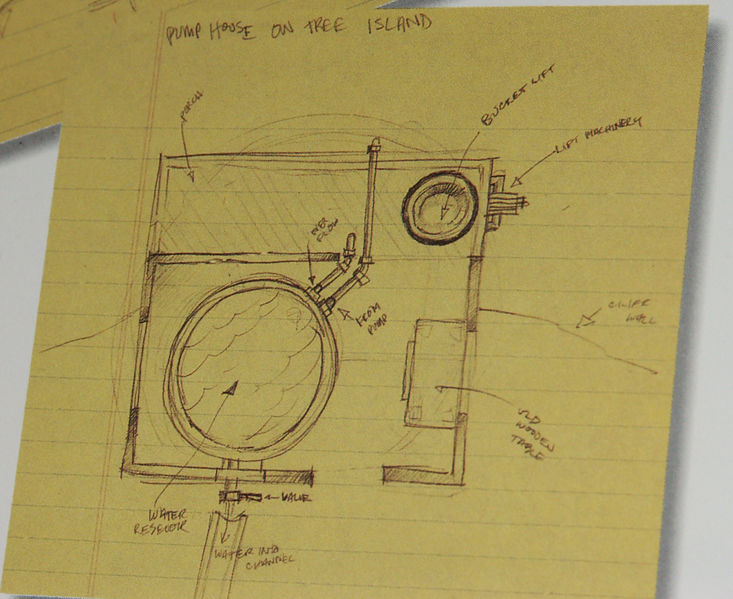 PUMP HOUSE ON TREE ISLAND
PORCH
BUCKET LIFT
LIFT MACHINERY
OVER
FLOW
FROM
PUMP
CLIFF
WALL
OLD
WOODEN
TABLE
WATER
RESEVOIR
VALVE
WATER INTO
CHANNEL